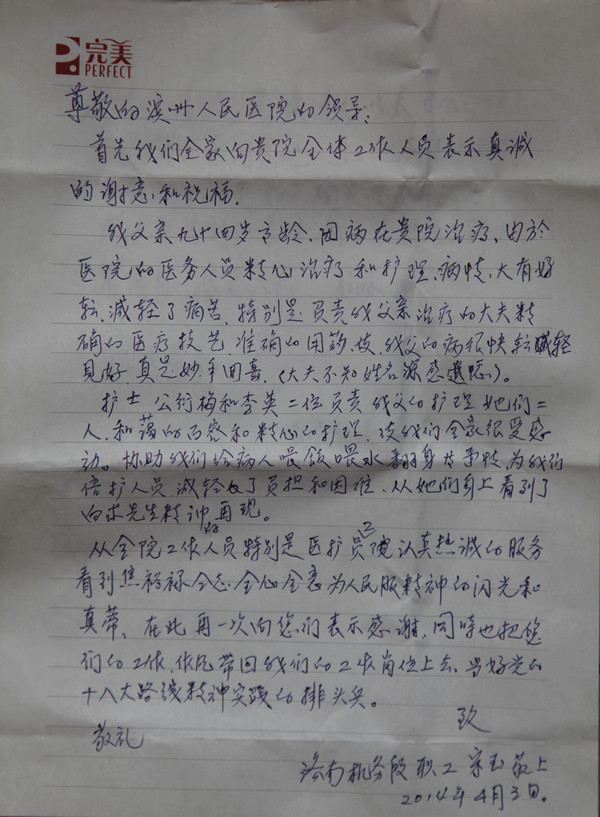 完美
PERFECT
尊敬的滨州人民医院的领导:
首先我们全家向贵院全体工作人员表示真诚
的谢意和祝福.
我父亲九十四岁高龄.因病在贵院治疗.由於
医院的医务人员精心治疗和护理.病情.大有好
转.减轻了病苦.特别是负责我父亲治疗的大夫精
确的医疗技艺.准确的用药.使.我父的病很快转减轻
见好.真是妙手回春.(大夫不知姓名深感遗憾.)。
护士公衍梅和李英二位负责我父的护理她们二
人.和蔼的面容和精心的护理.使我们全家很受感
动。协助我们给病人喂饭喂水翻身等事情,为我们
陪护人员减轻了负担和困难.从她们身上看到了
白求先生精神再现。
从全院工作人员特别是医护员认真热诚的服务
看到焦裕禄全心全意为人民服精神的闪光和
真蒂、在此再一次向您们表示感谢,同时也把您
们的工作.作风带回我们的工作岗位上去.当好党的
十八大路线精神实践的排头兵。
致
敬礼
济南机务段职工 宋玉 敬上
2014年4月3日.